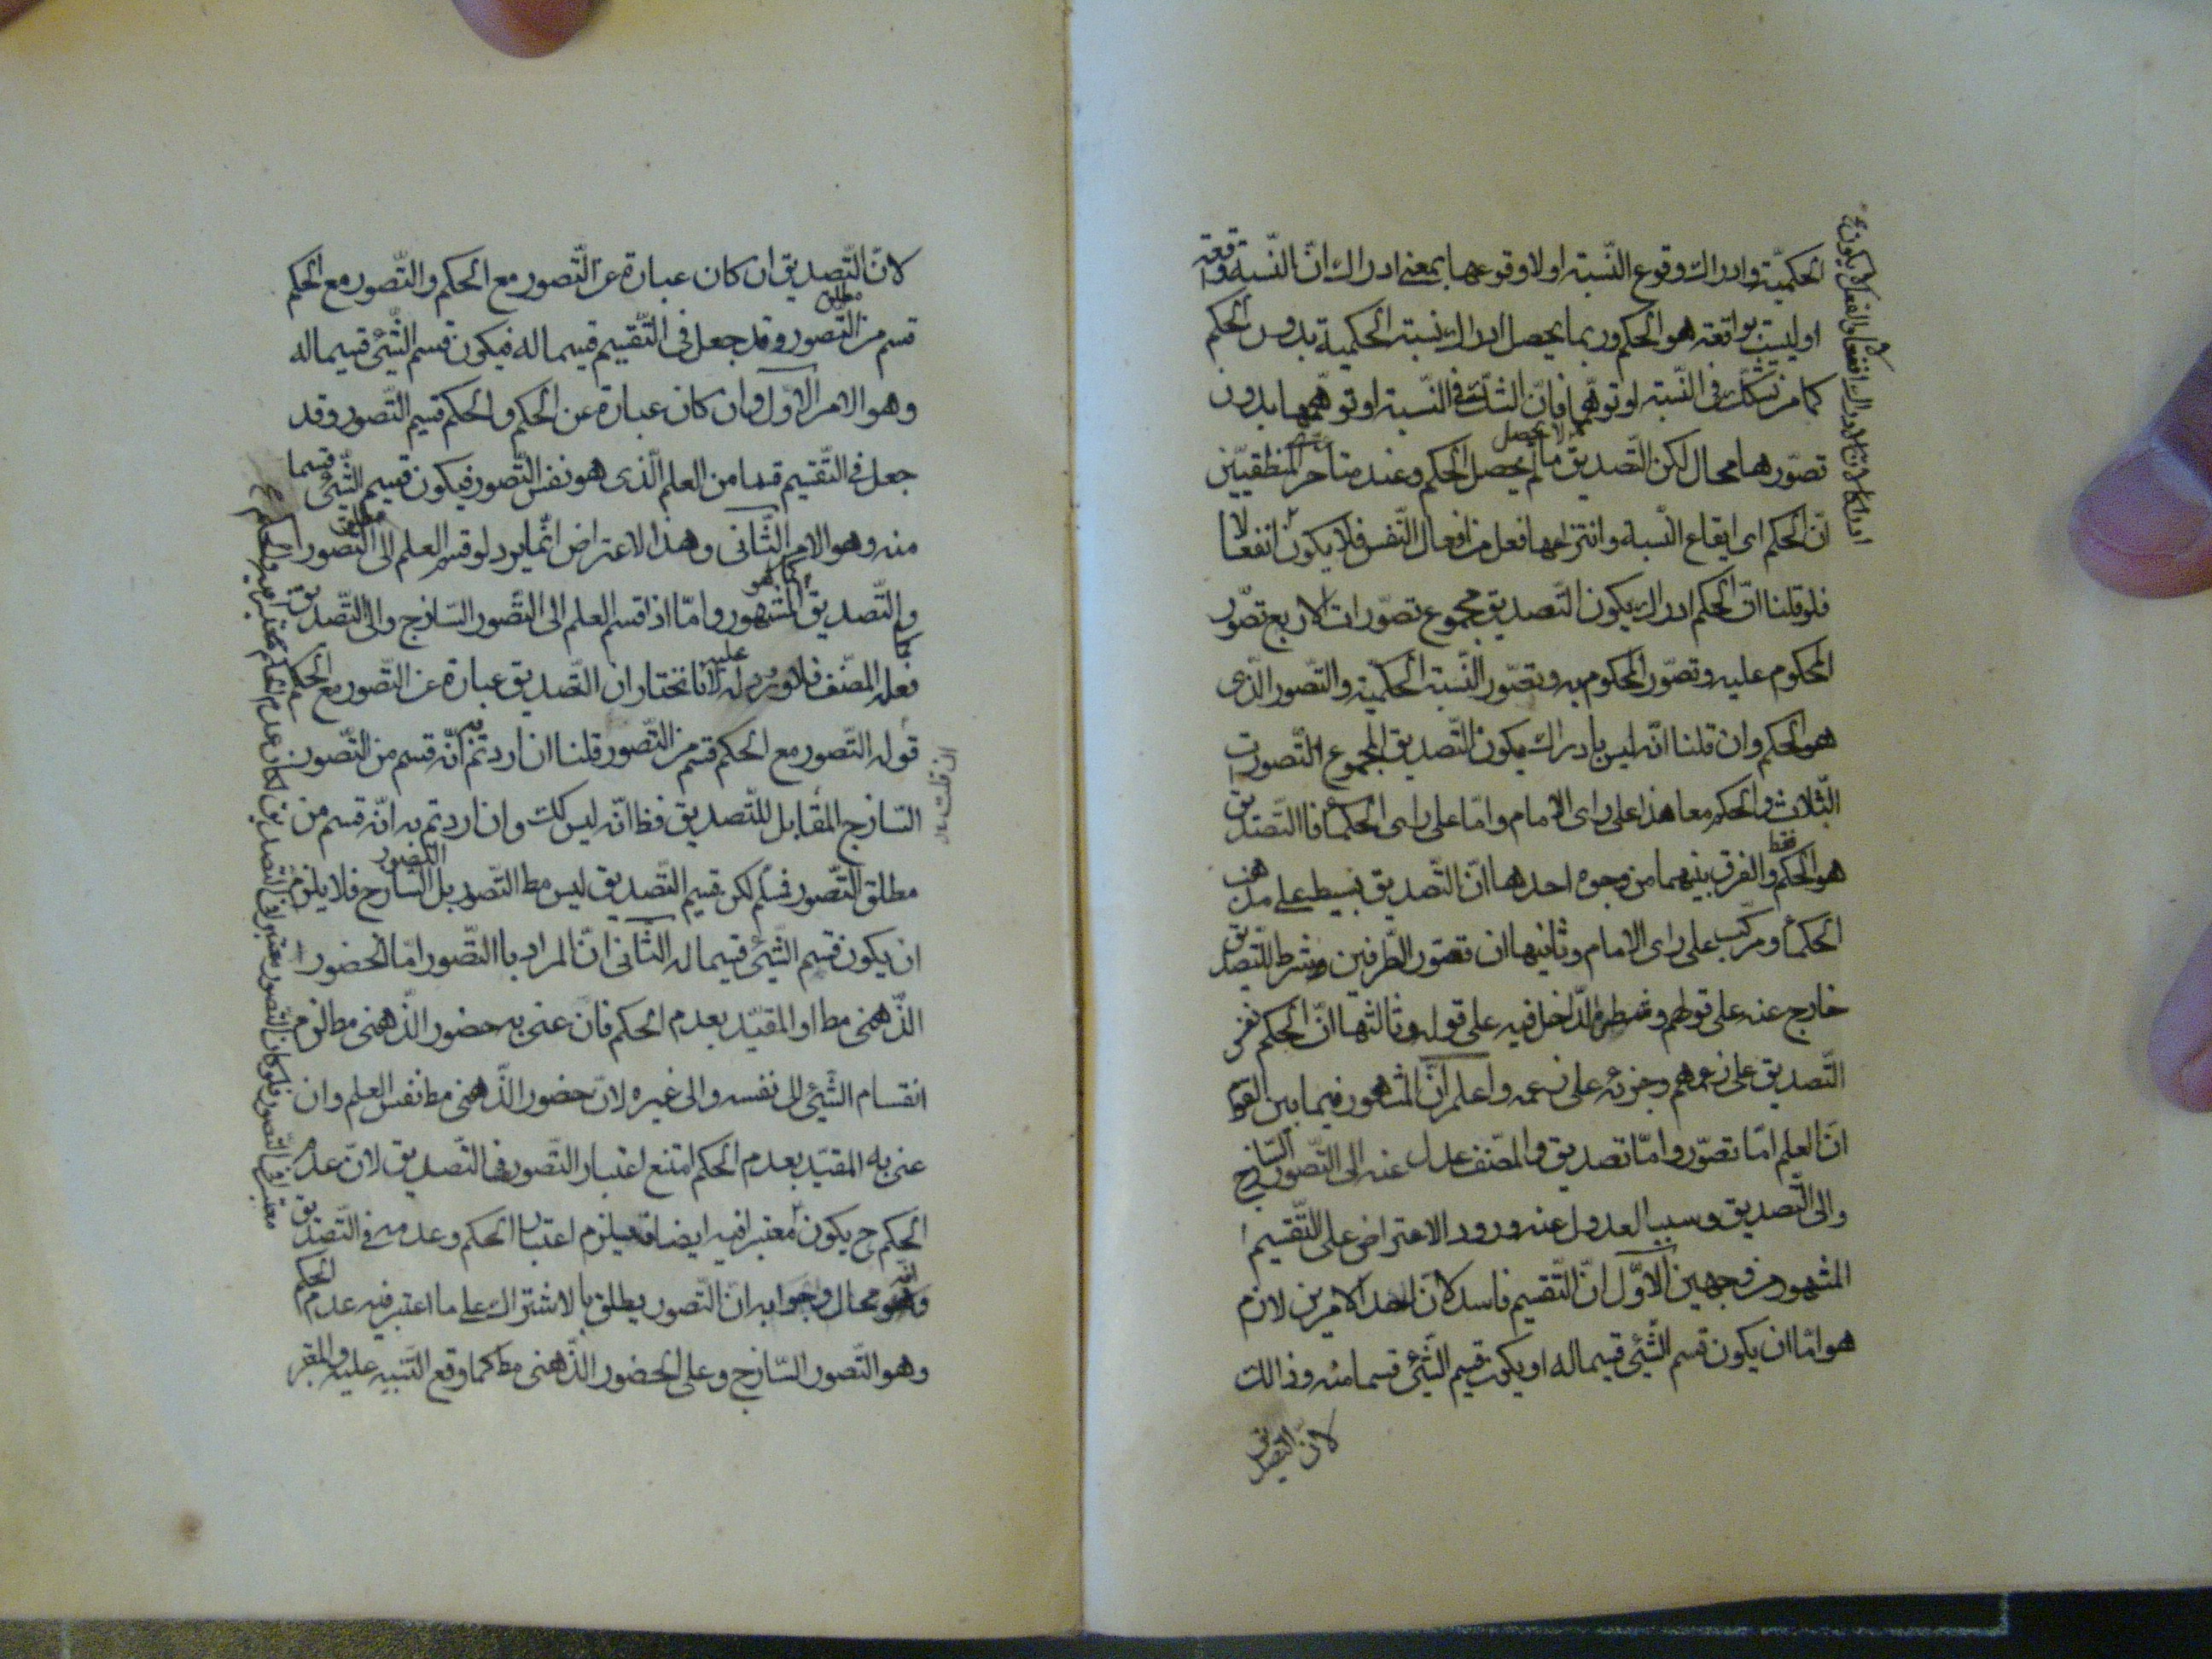 الحكميّة وادراك وقوع النّسبة او لا وقوعها بمعنى ادراك انّ النّسبة واقعة
او ليست بواقعة هو الحكم وربما يحصل ادراك نسبة الحكمية بدون الحكم
كمن تشكّك فى النّسبة او توهّمها فانّ الشّك فى النّسبة او توهّمها بدون
تصوّرها محال لكن التّصديق ما لم يحصل الحكم لا يحصل وعند متأخرى المنطقيّين
انّ الحكم اى ايقاع النّسبة وانتزاعها فعل من افعال النّفس فلا يكون
ادراكا لانّ الادراك انفعال والفعل لا يكون انفعالا
فلو قلنا انّ الحكم ادراك يكون التّصديق مجموع تصوّرات الاربع تصوّر
المحكوم عليه وتصوّر المحكوم به وتصّور النّسبة الحكميّة والتّصور الّذى
هو الحكم وان قلنا انّه ليس بادراك يكون التّصديق المجموع التّصورات
الثّلاث والحكم معا هذا على راى الامام وامّا على راى الحكمأ فا التّصديق
هو الحكم فقط والفرق بينهما من وجوه احدها انّ التّصديق بسيط على مذهب
الحكمأ ومركّب على راى الامام وثانيها ان تصّور الطّرفين شرط للتّصديق
خارج عنه على قولهم وشطره الدّاخل فيه على قوله وثالثها انّ الحكم نفس
التّصديق على زعمهم وجزئه على زعمه واعلم انّ المشهور فيما بين القوم
انّ العلم امّا تصوّر وامّا تصديق والمصّنف عدل عنه الى التّصور السّاذج
والى التّصديق وسبب العدول عنه ورود الاعتراض على التّقسيم
المشهور من وجهين الاوّل انّ التّقسيم فاسد لانّ احد الامرين لازم
هو امّا ان يكون قسم الشّئ قيسما له او يكون قيسم الشّئ قسما منه وذالك
لانّ التصديق
لانّ التّصديق ان كان عبارة عن التّصور مع الحكم والتّصور مع الحكم
قسم من التّصور وقد جعل فى التّقسيم قيسما له فيكون قسم الشّئ قيسما له
وهو الامر الاوّل وان كان عبارة عن الحكم والحكم قسيم التّصور وقد
جعل فى التّقسيم قسما من العلم الّذى هو نفس التّصور فيكون قسيم الشّئ قسما
منه وهو الامر الثّانى وهذا الاعتراض انّما يرد لو قسم العلم الى مطلق التّصور
والتّصديق كما هو المشهور وامّا اذا قسم العلم الى التّصور السّاذج والى التّصديق
كما فعله المصّنف فلا ورود له عليه لانا نختار ان التّصديق عبارة عن التّصور مع الحكم
قوله التّصور مع الحكم قسم من التّصور قلنا ان اردتم به انّه قسم من التّصور
السّاذج المقابل للتّصديق فظ انّه ليس كك وان اردتم به انّه قسم من
مطلق التّصور فمسلّم لكن قسيم التّصديق ليس مط التّصور بل التّصور السّاذج فلا يلزم
ان يكون قسم الشّئ قسيما له الثّانى انّ المراد با التّصور امّا الحضور
الذّهنى مط او المقيّد بعدم الحكم فانّ عنى به حضور الذّهنى مط لزم
انقسام الشّئ الى نفسه والى غيره لانّ حضور الذّهنى مط نفس العلم وان
عنى به المقيّد بعدم الحكم امتنع اعتبار التّصور فى التّصديق لانّ عدم
الحكم ح يكون معتبرا فيه ايضا فيلزم اعتبار الحكم وعدمه فى التّصديق
وانّه محال وجوابه انّ التّصور يطلق با لاشتراك على ما اعتبر فيه عدم الحكم
وهو التّصور السّاذج وعلى الحضور الذّهنى مط كما وقع التّنبيه عليه والمعتبر